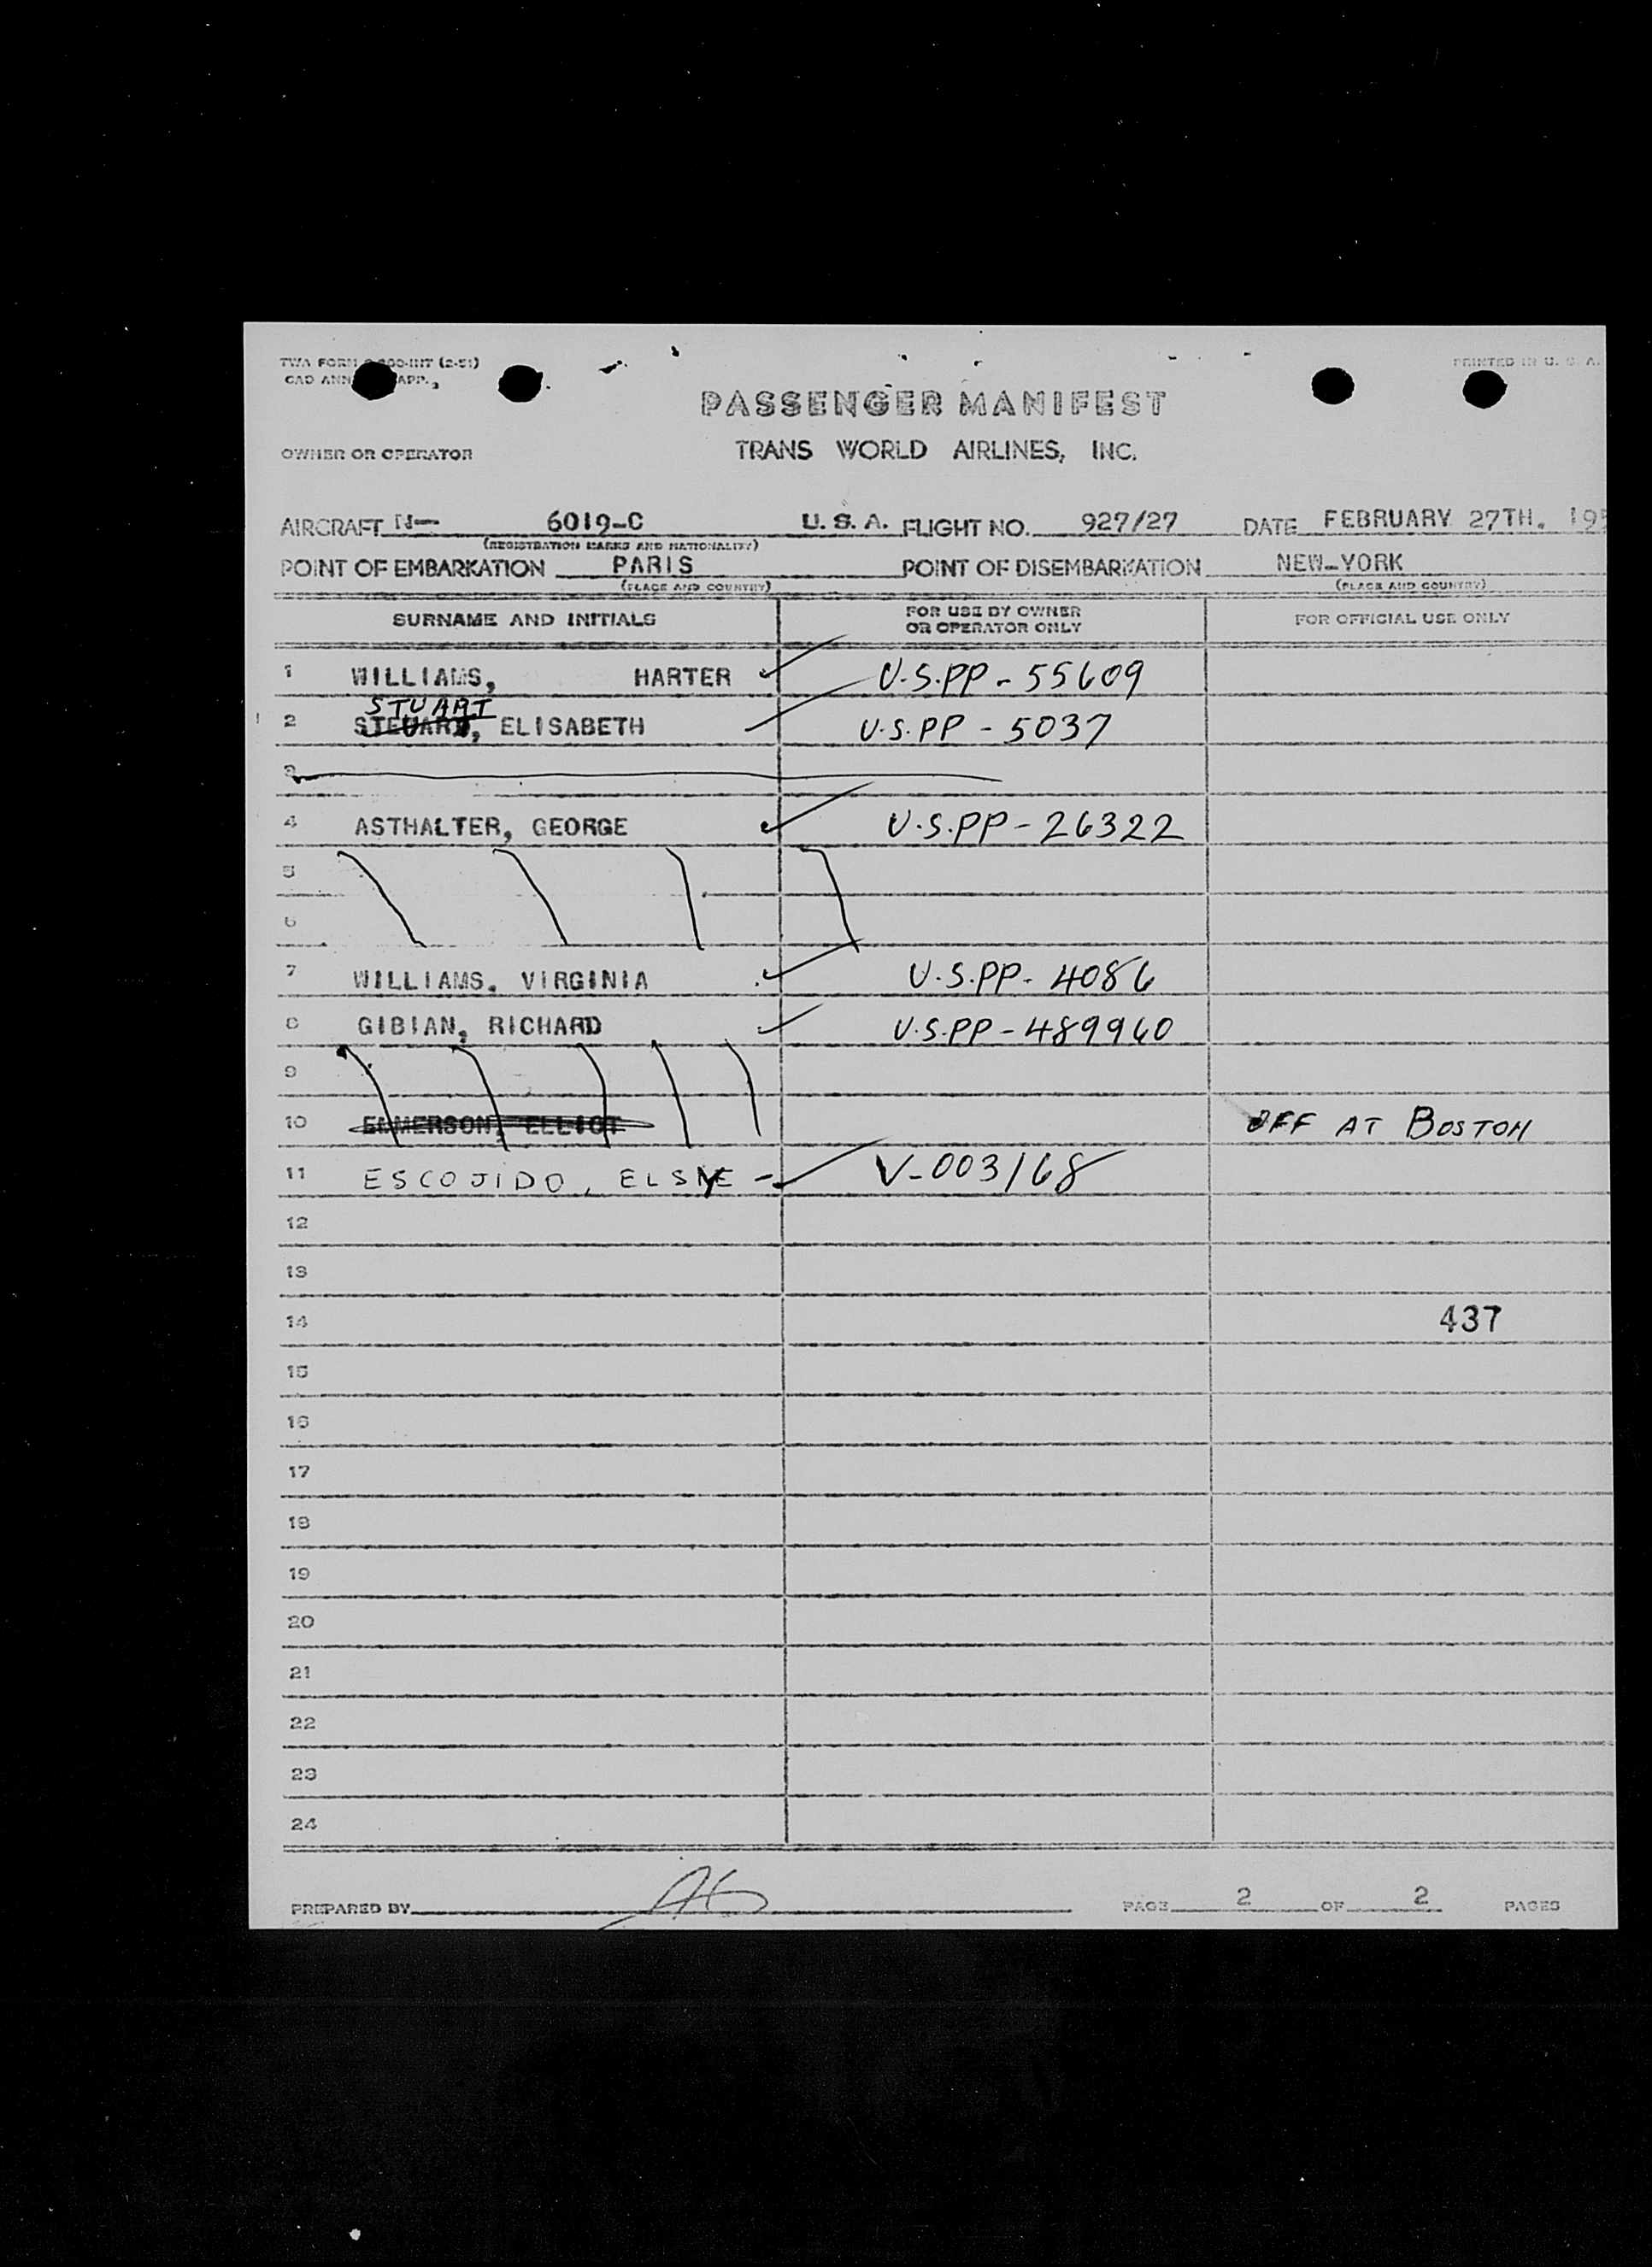 TWA FORM (2-51)
PRINTED IN U. S. A.
CAO ANN APP.
PASSENGER MANIFEST
OWNER OR OPERATOR TRANS WORLD AIRLINES, INC.
AIRCRAFT N— 6019-C U. S. A. FLIGHT NO. 927/27 DATE FEBRUARY 27TH. 195
(REGISTRATION MARKS AND NATIONALITY)
POINT OF EMBARKATION PARIS POINT OF DISEMBARKATION NEW-YORK
(PLACE AND COUNTRY) (PLACE AND COUNTRY)
SURNAME AND INITIALS FOR USE BY OWNER OR OPERATOR ONLY FOR OFFICIAL USE ONLY
1 WILLIAMS, HARTER U.S.PP - 55609
STUART
2 STEUART, ELISABETH U.S.PP - 5037
3
4 ASTHALTER, GEORGE U.S.PP - 26322
5
6
7 WILLIAMS, VIRGINIA U.S.PP - 4086
8 GIBIAN, RICHARD U.S.PP - 489960
9
10 EMMERSON, ELLIOT OFF AT BOSTON
11 ESCOJIDO, ELSYE - V-003168
12
13
14 437
15
16
17
18
19
20
21
22
23
24
PREPARED BY PAGE 2 OF 2 PAGES